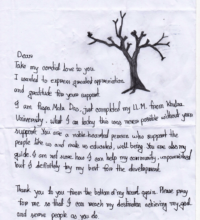 Dear
Take my cordial love to you.
I wanted to express graceful appreciation
and gratitude for your support.
I am Papa Mala Das, just completed my LL.M. from
University. what I am today this was never possible without your
support. You are a noble hearted person who support the
people like us and make us educated, well being. You are also my
guide. I am not sure how I can help my community, unprivileged
but I definitely try my best for the development.
Thank you to you from the bottom of my heart again. Please pray
for me so that I can reach my destination achieving my goal
and some people as you do